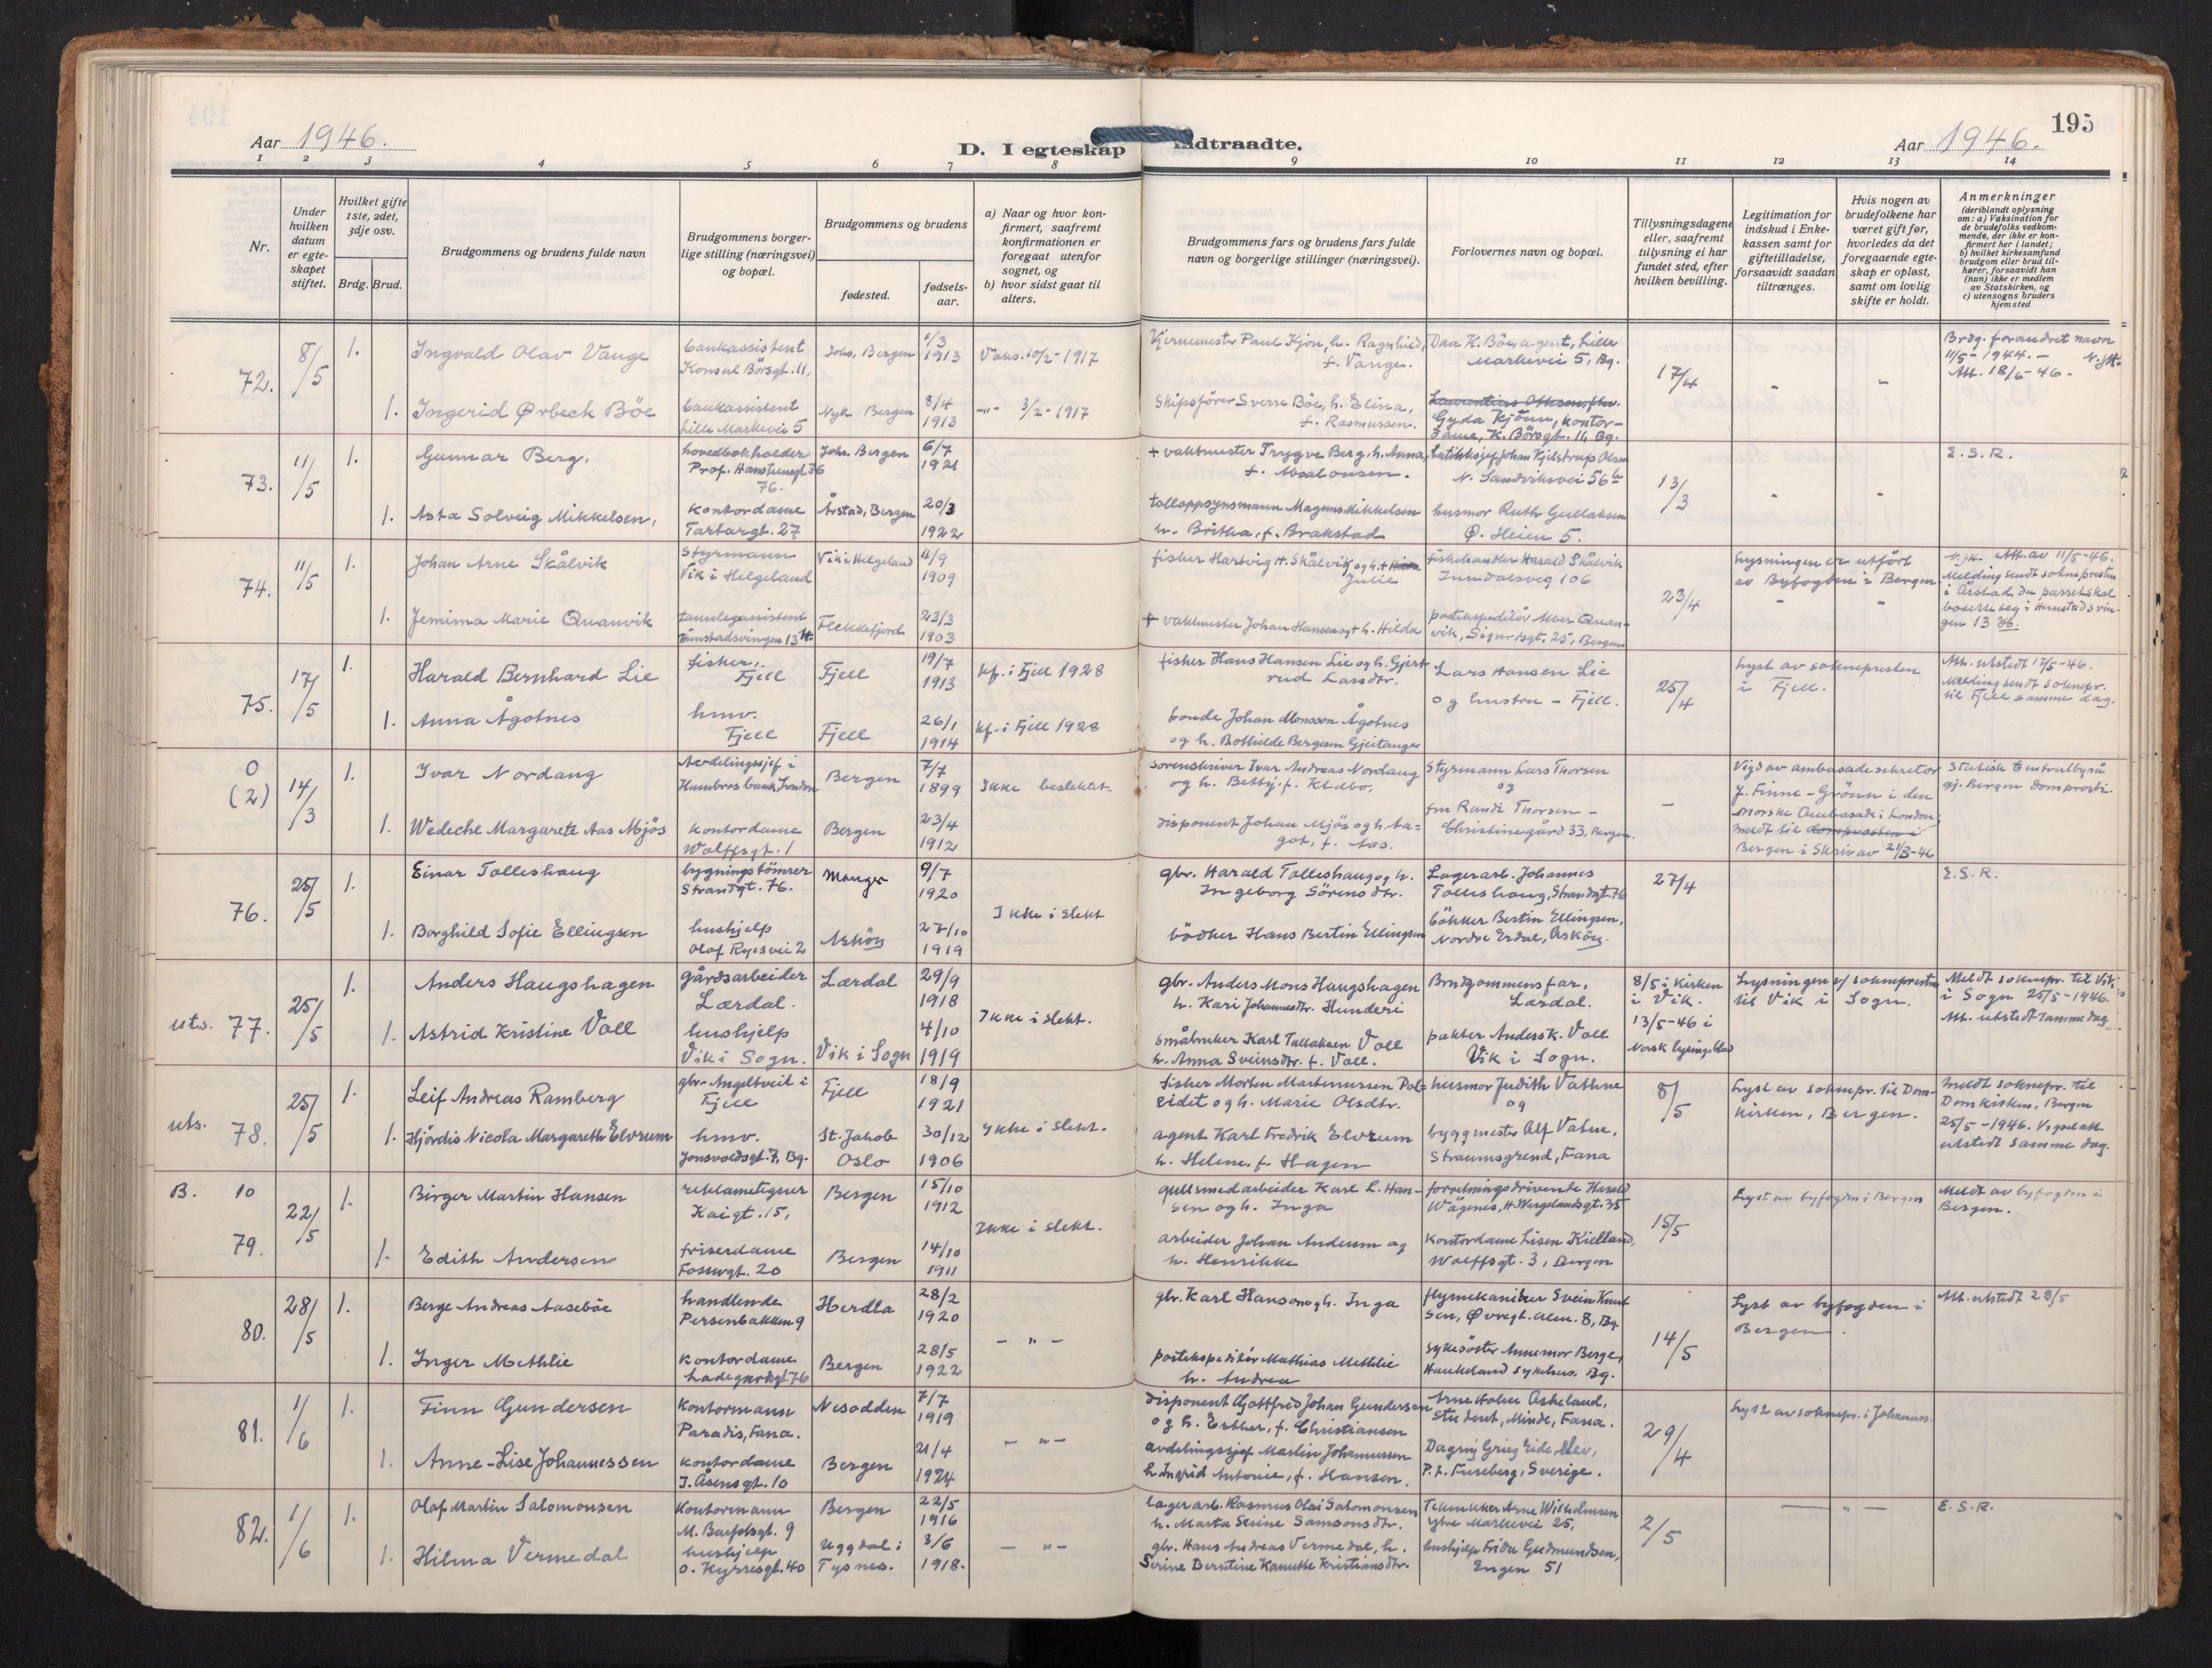 195
Aar 1946.
D. I egteskap indtraadte.
Aar 1946.
1 2 3 4 5 6 7 8 9 10 11 12 13 14
Nr.
Under hvilken datum er egteskapet stiftet.
Hvilket gifte 1ste, 2det, 3dje osv.
Brdg. Brud.
Brudgommens og brudens fulde navn
Brudgommens borgerlige stilling (næringsvei) og bopæl.
Brudgommens og brudens
fødested.
fødselsaar.
a) Naar og hvor konfirmert, saafremt konfirmationen er foregaat utenfor sognet, og
b) hvor sidst gaat til alters.
Brudgommens fars og brudens fars fulde navn og borgerlige stillinger (næringsvei).
Forlovernes navn og bopæl.
Tillysningsdagene eller, saafremt tillysning ei har fundet sted, efter hvilken bevilling.
Legitimation for indskud i Enkekassen samt for giftetilladelse, forsaavidt saadan tiltrænges.
Hvis nogen av brudefolkene har været gift før, hvorledes da det foregaaende egteskap er opløst, samt om lovlig skifte er holdt.
Anmerkninger
(deriblandt oplysning om: a) Vaksination for de brudefolks vedkommende, der ikke er konfirmert her i landet; b) hvilket kirkesamfund brudgom eller brud tilhører, forsaavidt han (hun) ikke er medlem av Statskirken, og c) utensogns bruders hjemsted
72. 8/5 1. Ingvald Olav Vange
bankassistent Konsul Börsgt. 11,
Johs, Bergen 1913
Vaks. 10/2-1917
Kjernemester Paul Kjön, h. Ragnhild, f. Vange.
Daa K. Böe, agent, Lille Markevei 5, Bg.
17/4
Brdg. forandret navn 11/5-1944.- Att. 18/6-46.
1. Ingerid Ørbeck Böe
bankassistent Lille Markevei 5
Nyk. Bergen 8/4 1913
-"- 3/2-1917
Skipsfører Sverre Böe, h. Elina, f. Rasmussen.
Gyda Kjönn, kontordame, K. Börsgt. 11, Bg.
73. 11/5 1. Gunnar Berg.
hovedbokholder Prof. Hansteensgt. 76
76.
Johs. Bergen 6/7 1921
+ vaktmester Trygve Berg, h. Anna, f. Absalonsen.
butikksjef Johan Kjilstrup Olsen N. Sandviksvei 56b
13/3
E.S.R.
1. Asta Solveig Mikkelsen,
kontordame Tartargt. 27
Årstad, Bergen 20/3 1922
tolloppsynsmann Magnus Mikkelsen h. Britha, f. Brakstad
husmor Ruth Gullaksen Ø. Heien 5.
74. 11/5 1. Johan Arne Skålvik
styrmann Vik i Helgeland
Vik i Helgeland 4/9 1909
fisker Hartvig H. Skålvik og h. + Julie
fiskehandler Harald Skålvik Inndalsveg 106
23/4
Lysningen er utført av Byfogden i Bergen
Att. av 11/5-46. Melding sendt sokneprest i Årstad, da parret skal bosette seg i Hunstadsvingen 13 H.
1. Jemima Marie Quanvik
tannlegassistent Hunstadsvingen 13 H.
Flekkefjord 23/3 1903
+ vaktmester Johan Hansen og + h. Hilda
postekspeditör Alver Quanvik, Sigurdsgt. 25, Bergen
75. 17/5 1. Harald Bernhard Lie
fisker, Fjell
Fjell 19/7 1913
kf. i Fjell 1928
fisker Hans Hansen Lie og h. Gjertrud Larsdtr.
Lars Hansen Lie og hustru - Fjell.
25/4
Lyst av soknepresten i Fjell.
Att. utstedt 17/5-46. Melding sendt soknepr. til Fjell samme dag.
1. Anna Ågotnes
hmv. Fjell
Fjell 26/1 1914
kf. i Fjell 1928
bonde Johan Monsson Ågotnes og h. Bothilde Bergesen Gjeitanger
0 (2) 14/3 1. Ivar Nordang
Avdelingssjef i Hambros bank, London
Bergen 7/7 1899
Ikke beslektet.
sorenskriver Ivar Andreas Nordang og h. Betty, f. Klæbo.
Styrmann Lars Thorsen og fru Randi Thorsen - Christinegård 33, Bergen.
-
Vigd av ambasadesekretær J. Finne-Grönn i den norske Ambasade i London, meldt til Bergen i Skriv av 21/3-46
Statisk Centralbyrå gj. Bergen domprosti.
1. Wedeche Margarete Aas Mjös
kontordame Wolffsgt. 1
Bergen 23/4 1912
disponent Johan Mjös og h. Aagot, f. Aas.
76. 25/5 1. Einar Tolleshaug
bygningstömrer Strandgt. 76.
Manger 9/7 1920
Ikke i slekt
gbr. Harald Tolleshaug og h. Ingeborg Sörensdtr.
Lagerarb. Johannes Tolleshaug, Strandgt. 76
27/4
E.S.R.
1. Borghild Sofie Ellingsen
hushjelp Olaf Ryesvei 2
Askøy 27/10 1919
bödker Hans Bertin Ellingsen
bökker Bertin Ellingsen, Nordre Erdal, Asköy.
uts. 77. 25/5 1. Anders Haugshagen
gårdsarbeider Lærdal.
Lærdal 29/9 1918
Ikke i slekt.
gbr. Anders Mons Haugshagen h. Kari Johannesdtr. Hunderi
Brudgommens far, Lærdal.
8/5 i Kirken i Vik. 13/5-46 i Norsk lysingsblad
Lysningen v/ soknepresten til Vik i Sogn.
Meldt soknepr. til Vik i Sogn 25/5-1946. Att. utstedt samme dag
1. Astrid Kristine Voll
hushjelp Vik i Sogn.
Vik i Sogn 4/10 1919
småbruker Karl Tollaksen Voll h. Anna Sveinsdtr. f. Voll.
pukter Anders K. Voll Vik i Sogn.
uts. 78. 25/5 1. Leif Andreas Ramberg
gbr. Angeltveit i Fjell
Fjell 18/9 1921
Ikke i slekt.
fisker Morten Martinussen Poleidet og h. Marie Olsdtr.
husmor Judith Vathne og byggmester Alf Vatne, Straumsgrend, Fana
8/5
Lyst av soknepr. til Domkirken, Bergen.
Meldt soknepr. til Domkirken, Bergen 25/5-1946. Vigselatt. utstedt samme dag.
1. Hjördis Nicola Margareth Elvrum
hmv. Jonsvoldsgt. 7, Bg.
St. Jakob Oslo 30/12 1906
agent Karl Fredrik Elvrum h. Helene, f. Hagen
B. 10 79. 22/5 1. Birger Martin Hansen
reklametegner Kaigt. 15,
Bergen 15/10 1912
Ikke i slekt.
gullsmedarbeider Karl L. Hansen og h. Inga
forretningsdrivende Harald Wågenes, H. Wergelandsgt. 35
15/5
Lyst av byfogden i Bergen
Meldt av byfogden i Bergen.
1. Edith Andersen
friserdame Fosswgt. 20
Bergen 14/10 1911
arbeider Johan Andersen og h. Henrikke
Kontordame Lisen Kielland, Wolffsgt. 3, Bergen
80. 28/5 1. Berge Andreas Aasebøe
handlende Persenbakken 9
Herdla 28/2 1920
- " -
gbr. Karl Hanson og h. Inga
flymekaniker Svein Knutsen, Øvregt. alm. 8, Bg.
14/5
Lyst av byfogden i Bergen.
Att. utstedt 28/5
1. Inger Methlie
Kontordame Ladegårdsgt. 76
Bergen 28/5 1922
postekspeditör Mathias Methlie h. Andrea
sykesöster Annemor Berge, Haukeland sykehus. Bg.
81. 1/6 1. Finn Gundersen
Kontormann Paradis, Fana.
Nesodden 7/7 1919
- " -
disponent Gottfrid Johan Gundersen og h. Esther, f. Christiansen
Arne Holm Askeland, student, Minde, Fana.
29/4
Lyst av soknepr. i Johannes.
1. Anne-Lise Johannessen
kontordame I. Åsensgt. 10
Bergen 21/4 1924
avdelingssjef Martin Johannessen h. Ingrid Antonie, f. Hansen.
Dagny Grieg Eide, elev, P.t. Furuberg, Sverige.
82. 1/6 1. Olaf Martin Salomonsen
Kontormann M. Barfotsgt. 9
Bergen 22/5 1916
- " -
lagerarb. Rasmus Olai Salomonsen h. Marta Serine Samsonsdtr.
Tekniker Arne Wilhelmsen Ytre Markevei 25,
2/5
- " -
E.S.R.
1. Hilma Vermedal
hushjelp O. Kyrresgt. 40
Uggdal i Tysnes. 3/6 1918.
gbr. Hans Andreas Vermedal, h. Serine Berntine Kanutte Kristiansdtr.
hushjelp Frida Gudmundsen, Engen 51